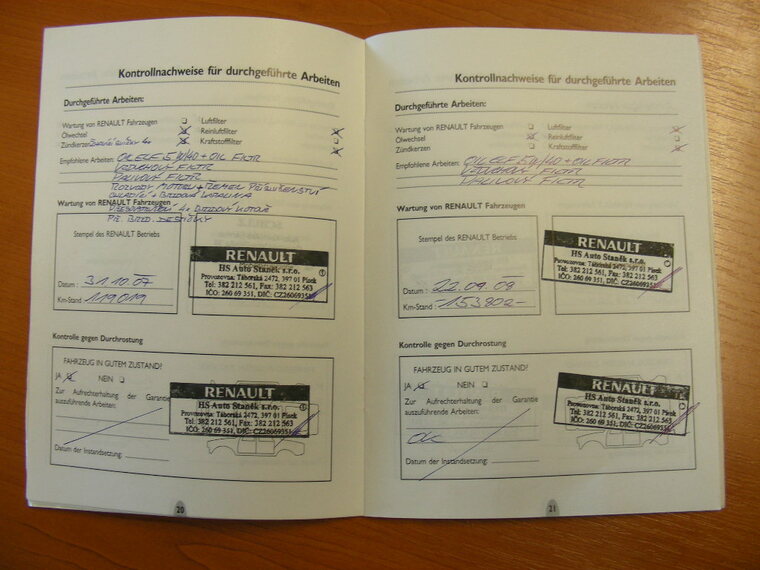 Kontrollnachweise für durchgeführte Arbeiten
Durchgeführte Arbeiten:
Wartung von RENAULT Fahrzeugen Luftfilter
Ölwechsel Reinluftfilter
Zündkerzen Kraftstofffilter
Empfohlene Arbeiten: OIL ELF 5W/40 + OIL FILTR
VZDUCHOVÝ FILTR
PALIVOVÝ FILTR
ROZVODY MOTORU + ŘEMEN PŘÍSLUŠENSTVÍ
CHLADÍCÍ + BRZDOVÁ KAPALINA
Wartung von RENAULT Fahrzeugen
4x BRZDOVÝ KOTOUČ
PŘ. BRZD. DESTIČKY
Stempel des RENAULT Betriebs
RENAULT
HS Auto Staněk s.r.o.
Provozovna: Táborská 2472, 397 01 Písek
Tel: 382 212 561, Fax: 382 212 563
IČO: 260 69 351, DIČ: CZ26069351
Datum : 31.10.07
Km-Stand : 119019
Kontrolle gegen Durchrostung
FAHRZEUG IN GUTEM ZUSTAND?
JA NEIN
Zur Aufrechterhaltung der Garantie
auszuführende Arbeiten:
RENAULT
HS Auto Staněk s.r.o.
Provozovna: Táborská 2472, 397 01 Písek
Tel: 382 212 561, Fax: 382 212 563
IČO: 260 69 351, DIČ: CZ26069351
Datum der Instandsetzung:
20
Kontrollnachweise für durchgeführte Arbeiten
Durchgeführte Arbeiten:
Wartung von RENAULT Fahrzeugen Luftfilter
Ölwechsel Reinluftfilter
Zündkerzen Kraftstofffilter
Empfohlene Arbeiten: OIL ELF 5W/40 + OIL FILTR
VZDUCHOVÝ FILTR
PALIVOVÝ FILTR
Wartung von RENAULT Fahrzeugen
Stempel des RENAULT Betriebs
RENAULT
HS Auto Staněk s.r.o.
Provozovna: Táborská 2472, 397 01 Písek
Tel: 382 212 561, Fax: 382 212 563
IČO: 260 69 351, DIČ: CZ26069351
Datum : 22.09.09
Km-Stand : -153802-
Kontrolle gegen Durchrostung
FAHRZEUG IN GUTEM ZUSTAND?
JA NEIN
Zur Aufrechterhaltung der Garantie
auszuführende Arbeiten:
RENAULT
HS Auto Staněk s.r.o.
Provozovna: Táborská 2472, 397 01 Písek
Tel: 382 212 561, Fax: 382 212 563
IČO: 260 69 351, DIČ: CZ26069351
O.K.
Datum der Instandsetzung:
21